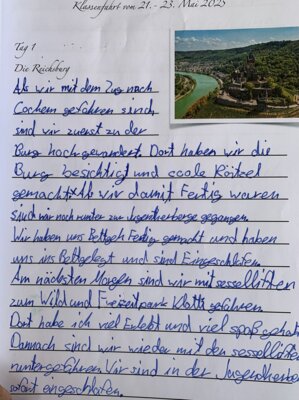 Klassenfahrt vom 21.- 23. Mai 2025
Tag 1
Die Reichsburg
Als wir mit dem Zug nach
Cochem gefahren sind,
sind wir zuerst zu der
Burg hoch gewandert. Dort haben wir die
Burg besichtigt und coole Rätzel
gemacht. Als wir damit Fertig waren
sind wir noch runter zur Jugentherberge gegangen
Wir haben uns Bettzeh Fertig gemacht und haben
uns ins Bett gelegt und sind Eingeschlafen
Am nächsten Morgen sind wir mit sesselliften
zum Wild und Freizeitpark Klotti gefahren
Dort habe ich viel Erlebt und viel spaß gehabt
Dannach sind wir wieder mit den sessellifte
runtergefahren Wir sind in der Jugendherber
sofort eingeschlafen.